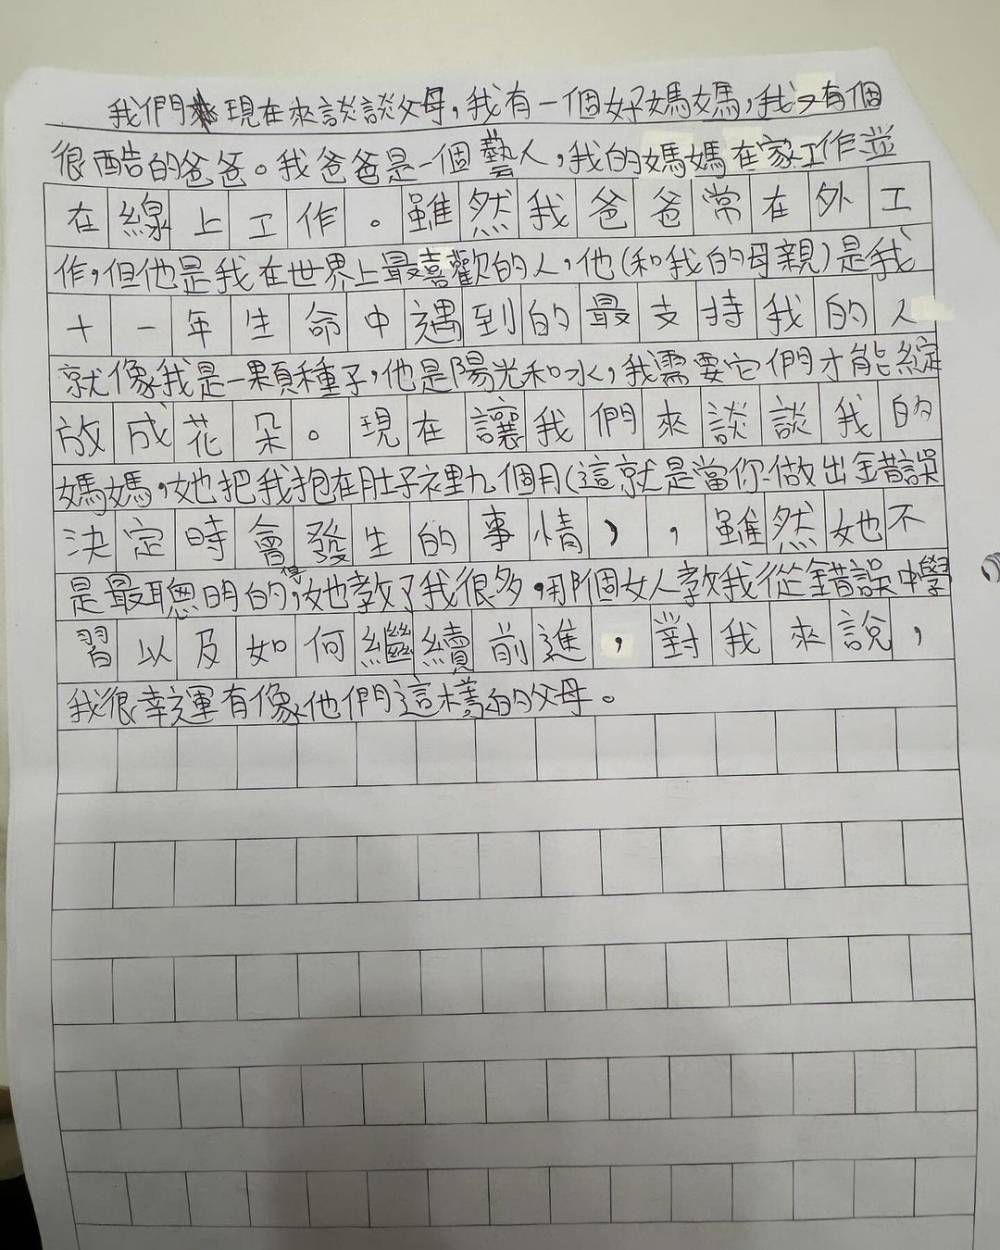 我們現在來談談父母，我有一個好媽媽，我又有個
很酷的爸爸。我爸爸是一個藝人，我的媽媽在家工作並
在線上工作。雖然我爸爸常在外工
作，但他是我在世界上最喜歡的人，他(和我的母親)是我
十一年生命中遇到的最支持我的人
就像我是一顆種子，他是陽光和水，我需要它們才能綻
放成花朵。現在讓我們來談談我的
媽媽，她把我抱在肚子裡九個月(這就是當你做出錯誤
決定時會發生的事情)，雖然她不
是最聰明的，但她教了我很多，那個女人教我從錯誤中學
習以及如何繼續前進，對我來說，
我很幸運有像他們這樣的父母。